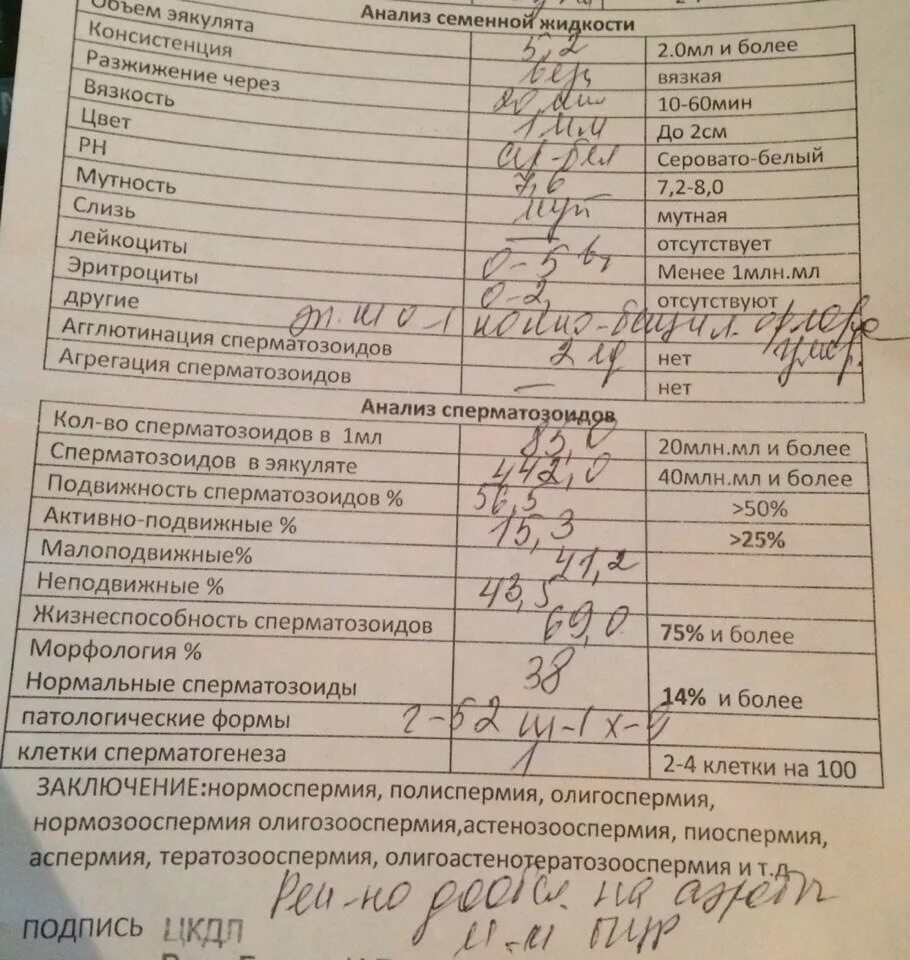 Анализ семенной жидкости
Объем эякулята 5,2 2.0мл и более
Консистенция вяз вязкая
Разжижение через 20 мин 10-60мин
Вязкость 1 мм До 2см
Цвет ср-бел Серовато-белый
РН 7,6 7,2-8,0
Мутность мут мутная
Слизь — отсутствует
лейкоциты 0-5 Менее 1млн.мл
Эритроциты 0-2 отсутствуют
другие эп. 0-1 кокко-бацил. флора умер.
Агглютинация сперматозоидов нет
Агрегация сперматозоидов — нет
Анализ сперматозоидов
Кол-во сперматозоидов в 1мл 85,0 20млн.мл и более
Сперматозоидов в эякуляте 442,0 40млн.мл и более
Подвижность сперматозоидов % 56,5 >50%
Активно-подвижные % 15,3 >25%
Малоподвижные% 41,2
Неподвижные % 43,5
Жизнеспособность сперматозоидов 69,0 75% и более
Морфология %
Нормальные сперматозоиды 38 14% и более
патологические формы г-52 ш-1 х-9
клетки сперматогенеза 1 2-4 клетки на 100
ЗАКЛЮЧЕНИЕ:нормоспермия, полиспермия, олигоспермия,
нормозооспермия олигозооспермия,астенозооспермия, пиоспермия,
аспермия, тератозооспермия, олигоастенотератозооспермия и т.д
на аэробы
ПОДПИСЬ ЦКДЛ ПЦР